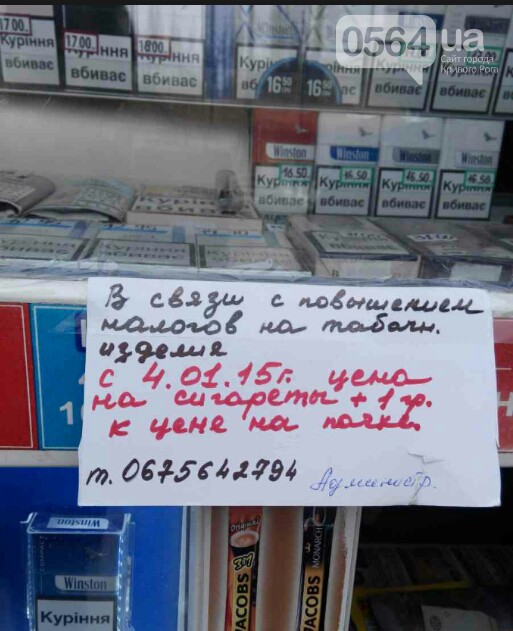 0564.ua
Сайт города
Кривого Рога
Winston
17 00
17.00
18.00
Куріння
вбиває
вбиває
вбиває
16 50
16 50
Winston
Winston
Winston
Winston
16.50
16.50
16.50
16.50
Куріння
вбиває
вбиває
вбиває
вбиває
В связи с повышением
налогов на табачн.
изделия
с 4.01.15г. цена
на сигареты + 1 гр.
к цене на пачке.
т. 0675642794
Администр.
Winston
Winston
Куріння
Original
3в1
JACOBS
MONARCH
JACOBS